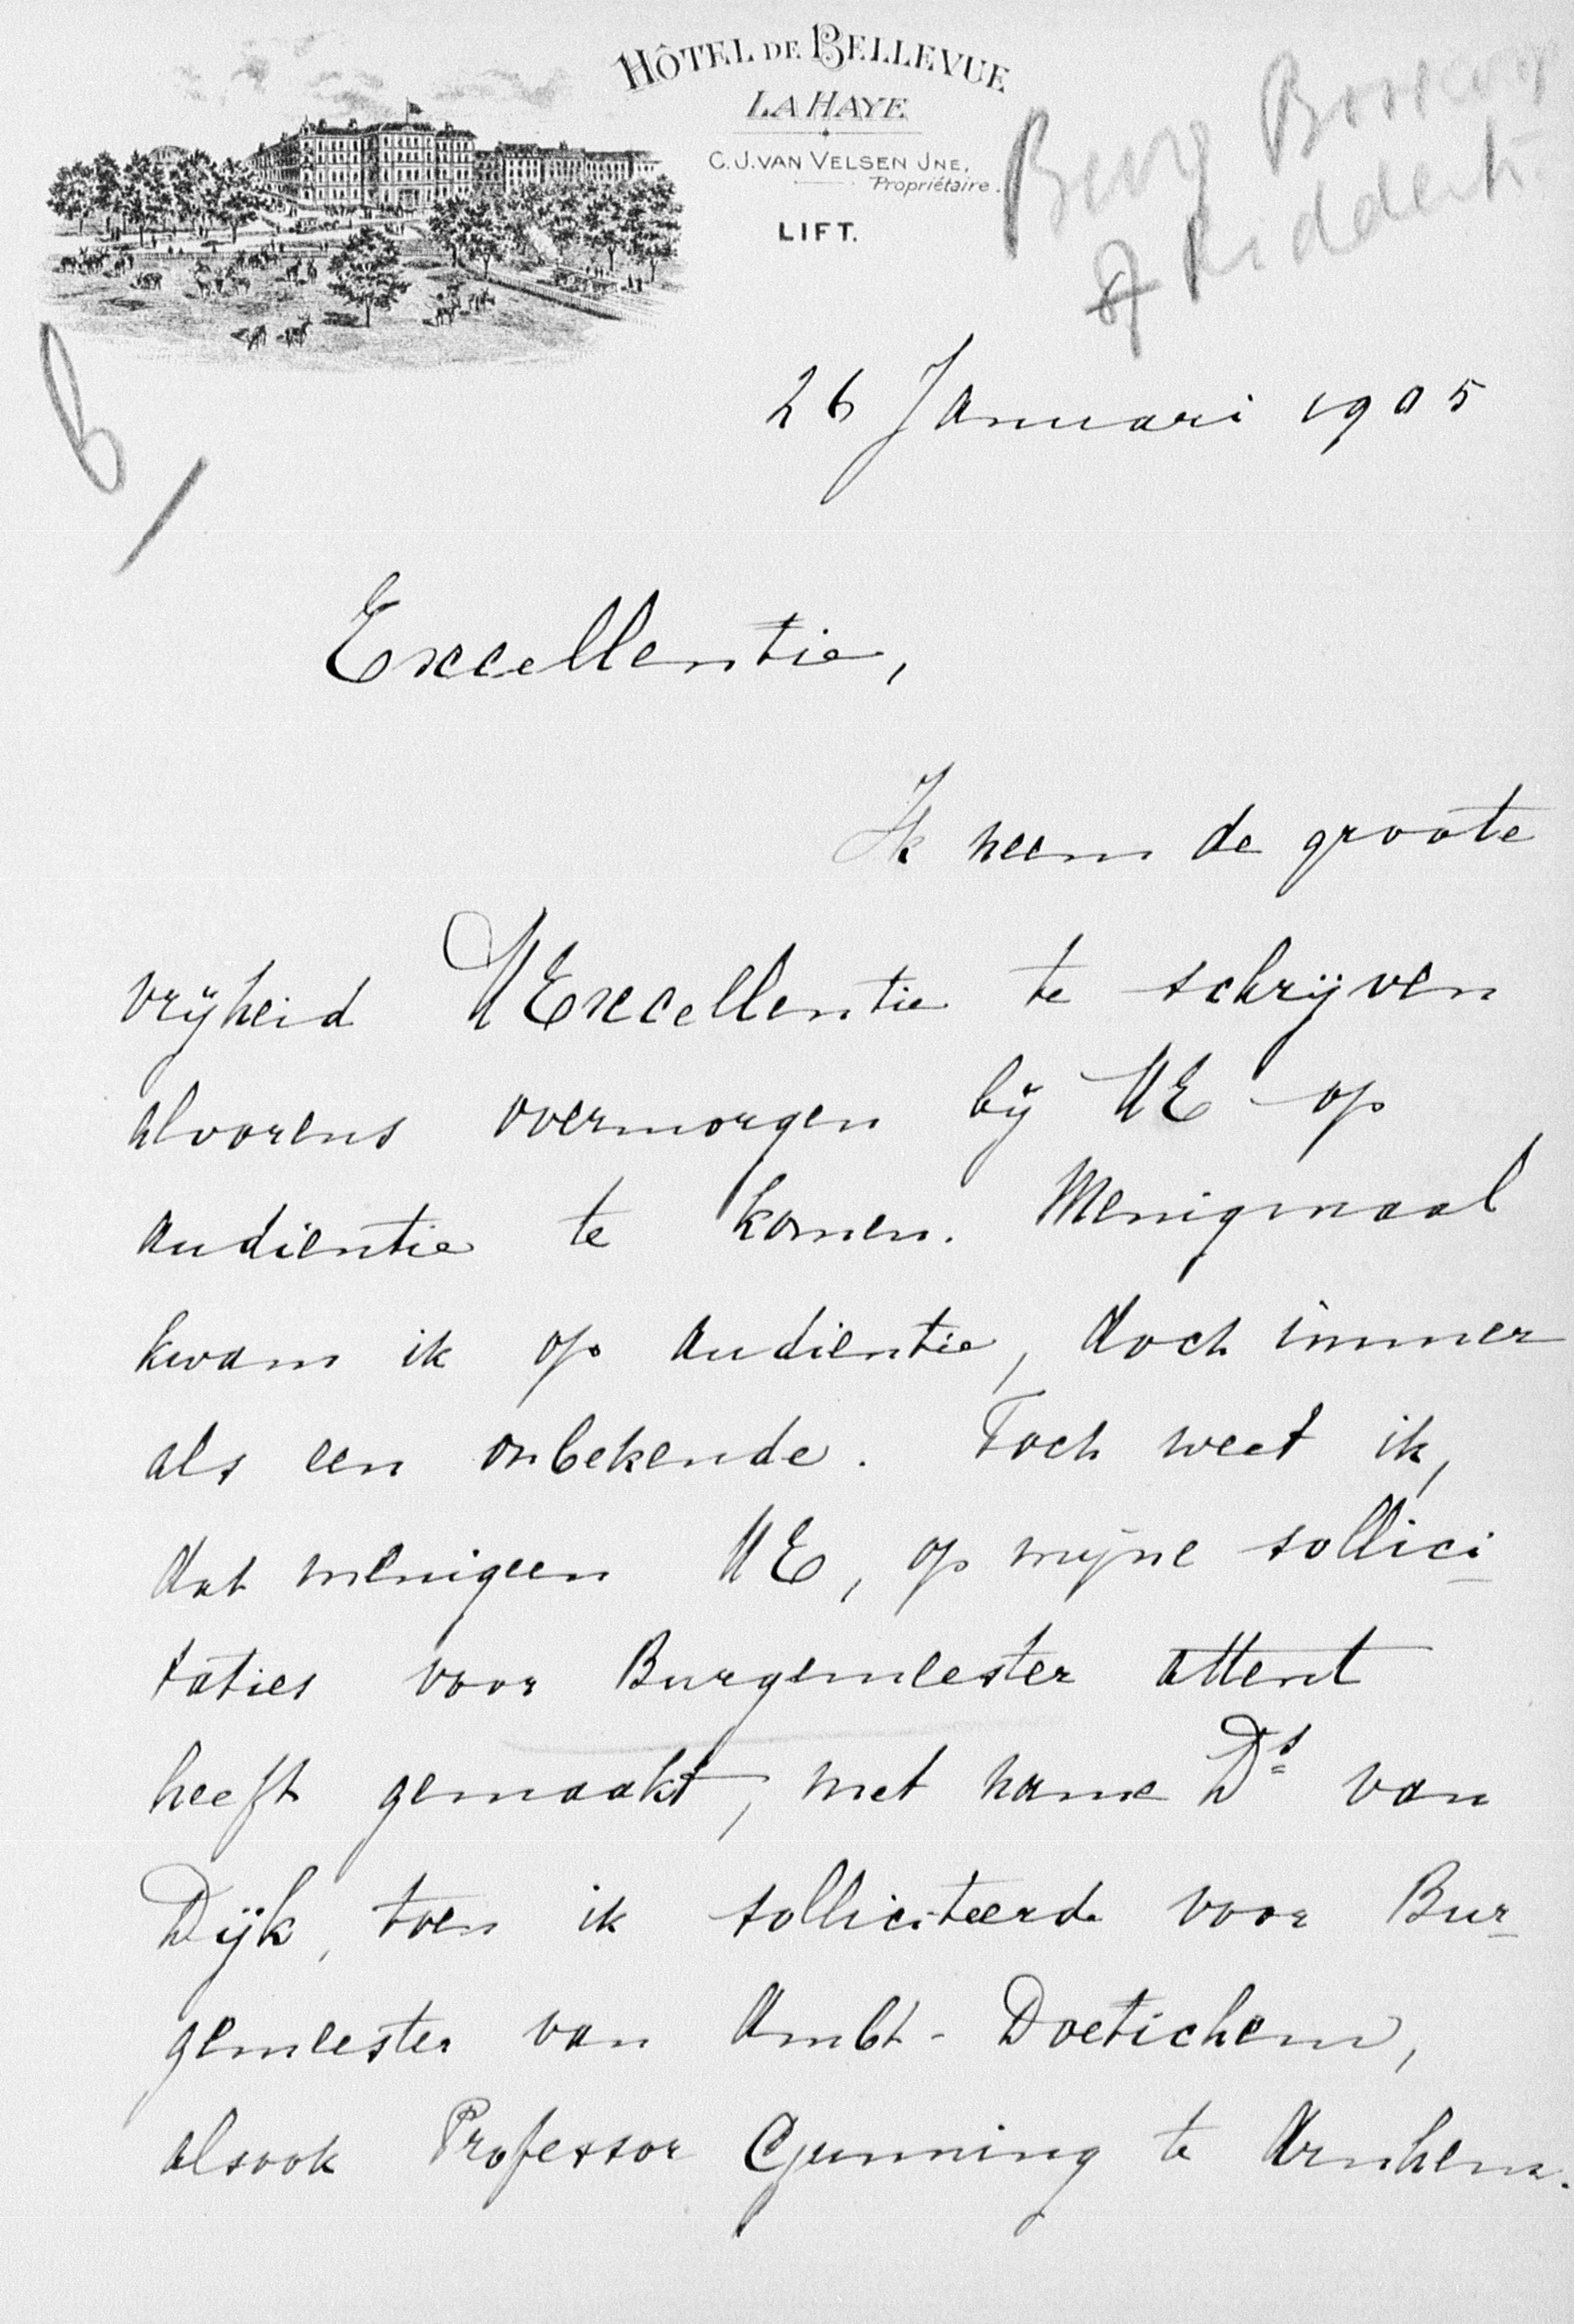 HÔTEL DE BELLEVUE
LA HAYE
C. J. VAN VELSEN JNE,
Propriétaire.
LIFT.
Burg
of
26 Januari 1905
Excellentie,
Ik neem de groote
vrijheid UExcellentie te schrijven
alvorens overmorgen bij UE op
audientie te komen. Menigmaal
kwam ik op audientie, doch immer
als een onbekende. Toch weet ik,
dat menigeen UE, op mijne sollici
taties voor Burgemeester attent
heeft gemaakt, met name Ds van
Dijk, toen ik solliciteerde voor Bur
gemeester van Ambt-Doetichem,
alsook Professor Gunning te Arnhem.